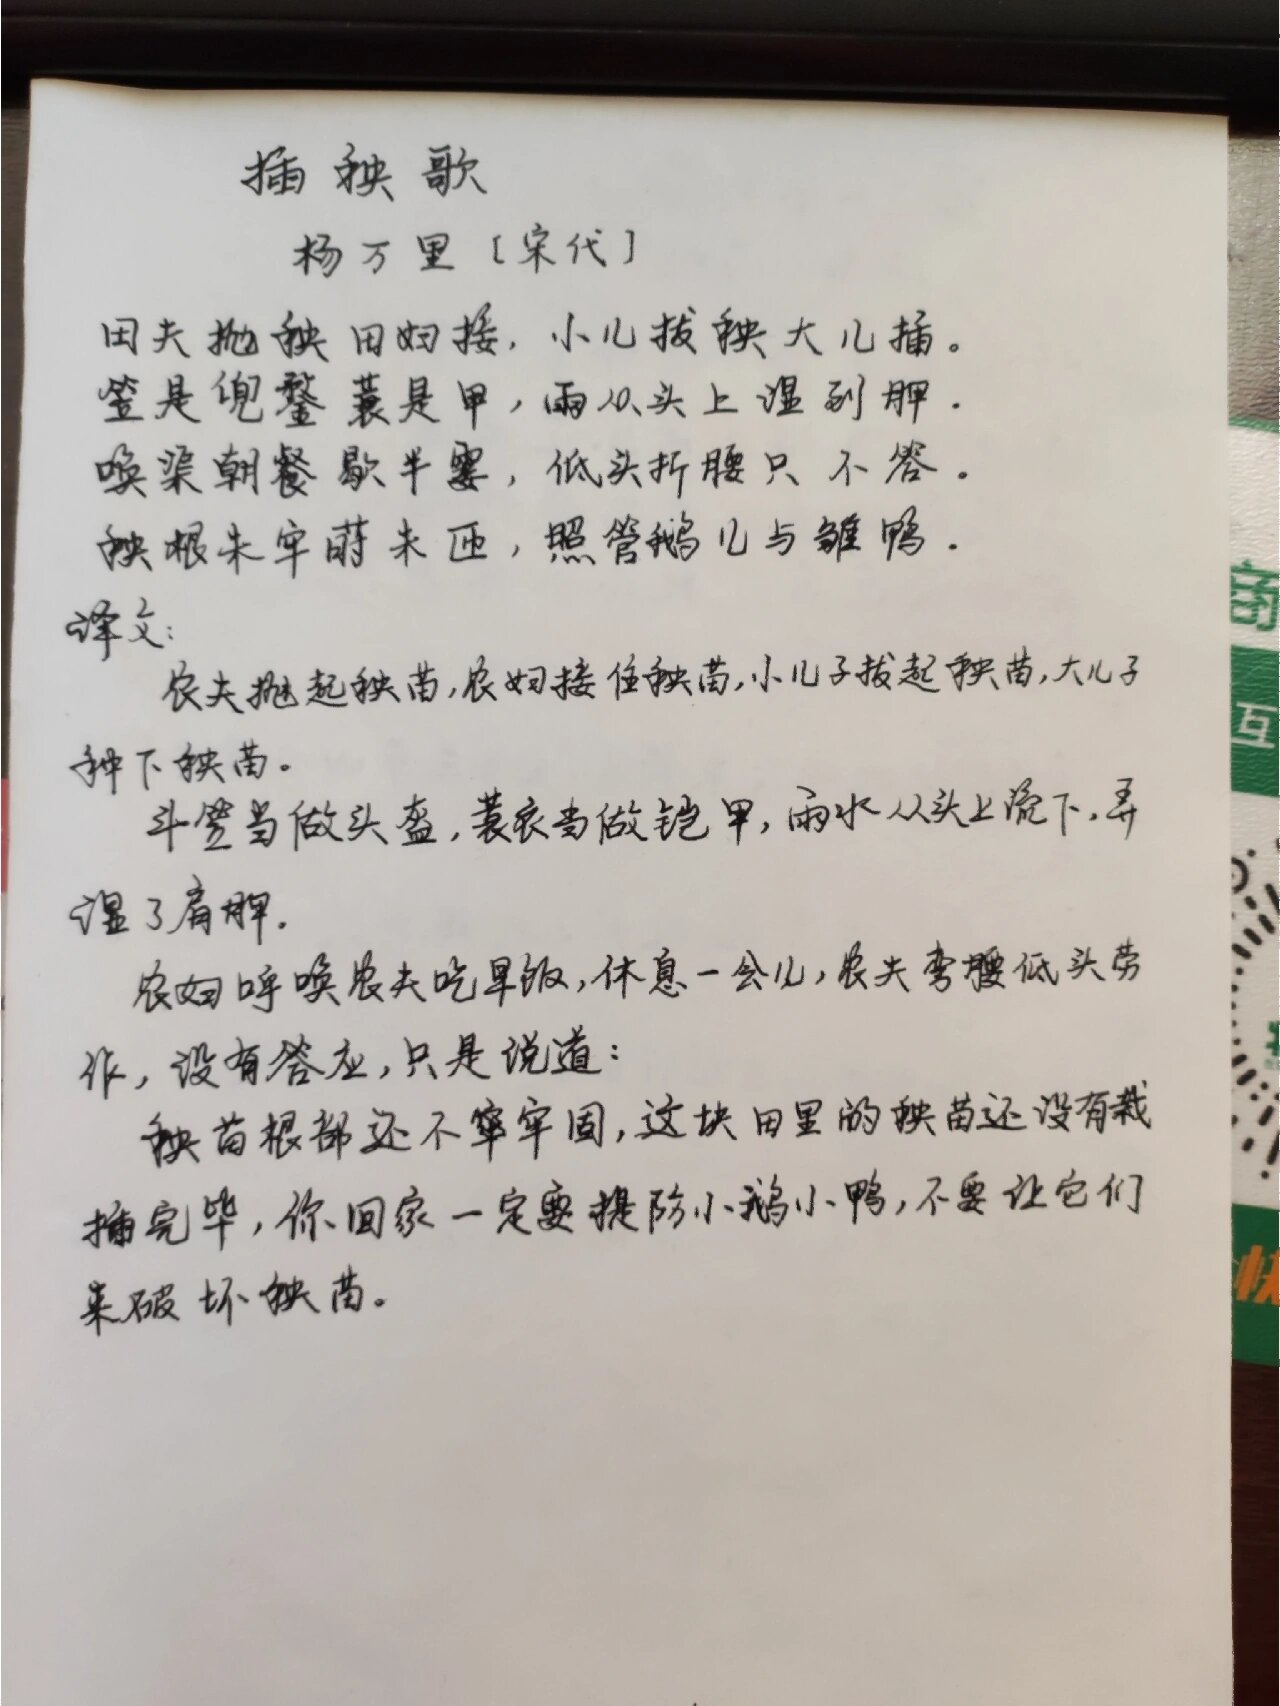 插秧歌
杨万里[宋代]
田夫抛秧田妇接，小儿拔秧大儿插。
笠是兜鍪蓑是甲，雨从头上湿到胛.
唤渠朝餐歇半霎，低头折腰只不答。
秧根未牢莳未匝，照管鹅儿与雏鸭.
译文:
农夫抛起秧苗,农妇接住秧苗,小儿子拔起秧苗,大儿子
种下秧苗。
斗笠当做头盔,蓑衣当做铠甲,雨水从头上流下,弄
湿了肩胛.
农妇呼唤农夫吃早饭,休息一会儿,农夫弯腰低头劳
作,没有答应,只是说道:
秧苗根部还不牢固,这块田里的秧苗还没有栽
插完毕,你回家一定要提防小鹅小鸭,不要让它们
来破坏秧苗。
商
互
快